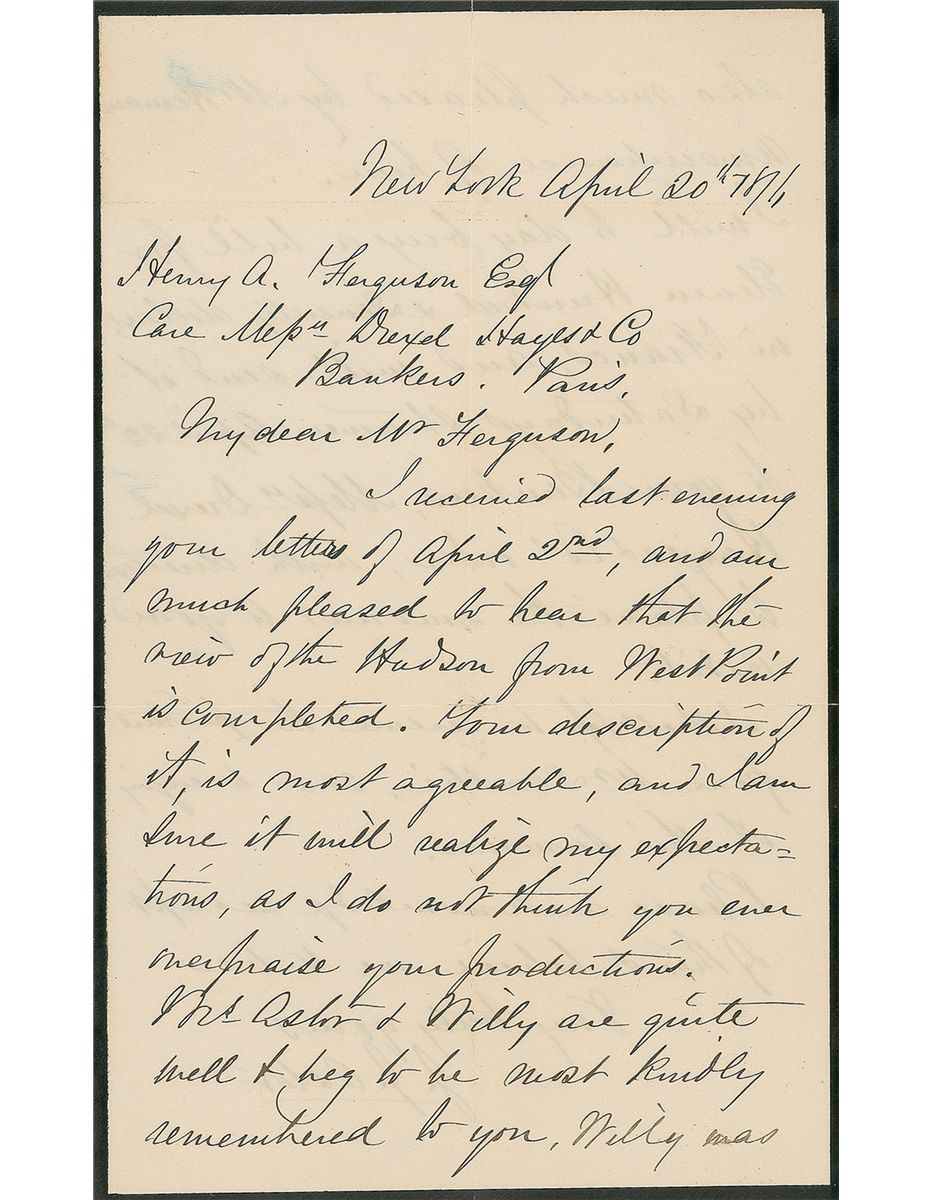 New York April 20th 1876,
Henry A. Ferguson Esqr
Care Messrs Drexel Hayes & Co
Bankers. Paris.
My dear Mr Ferguson,
I received last evening
your letters of April 2nd, and am
much pleased to hear that the
view of the Hudson from West Point
is completed. Your description of
it, is most agreeable, and I am
sure it will realize my expecta=
tions, as I do not think you ever
overpraise your productions.
Mrs Astor & Willy are quite
well & beg to be most kindly
remembered to you, Willy was